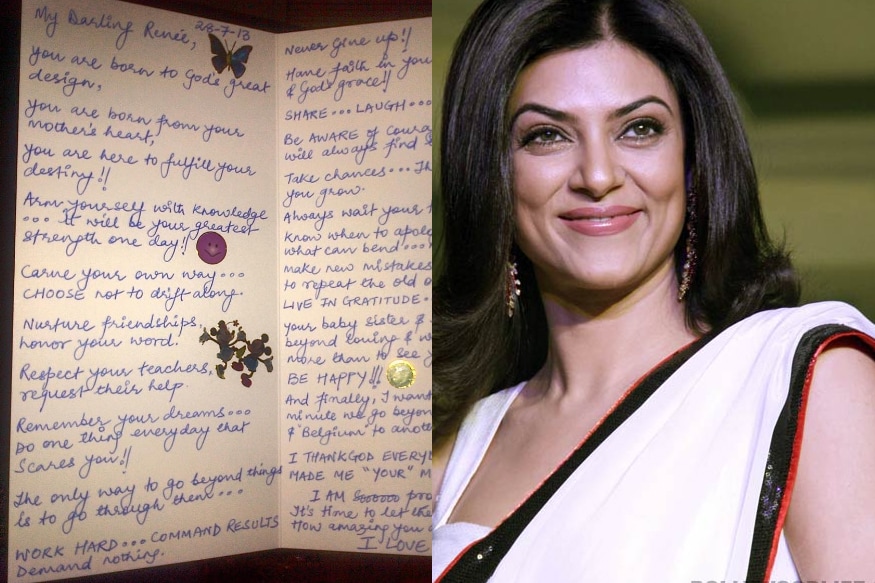 28-7-13
My Darling Renée,
you are born to God's great
design,
you are born from your
mother's heart,
you are here to fulfill your
destiny!!
Arm yourself with knowledge
... it will be your greatest
strength one day!!
Carve your own way...
CHOOSE not to drift along.
Nurture friendships,
honor your word.
Respect your teachers,
request their help.
Remember your dreams...
Do one thing everyday that
Scares you!!
The only way to go beyond things
is to go through them...
WORK HARD... COMMAND RESULTS
Demand nothing.
Never Give up!!
Have faith in you
& God's grace!!
SHARE... LAUGH...
Be AWARE of
will always find
Take chances...
you grow.
Always wait your
Know when to
what can bend...
make new mistakes
to repeat the old
LIVE IN GRATITUDE.
your baby sister &
beyond loving &
more than to see
BE HAPPY!!!
And finally, I want
minute we go
& "Belgium" to
I THANKGOD
MADE ME "YOUR" M
I AM
It's time to let
How amazing you
I LOVE